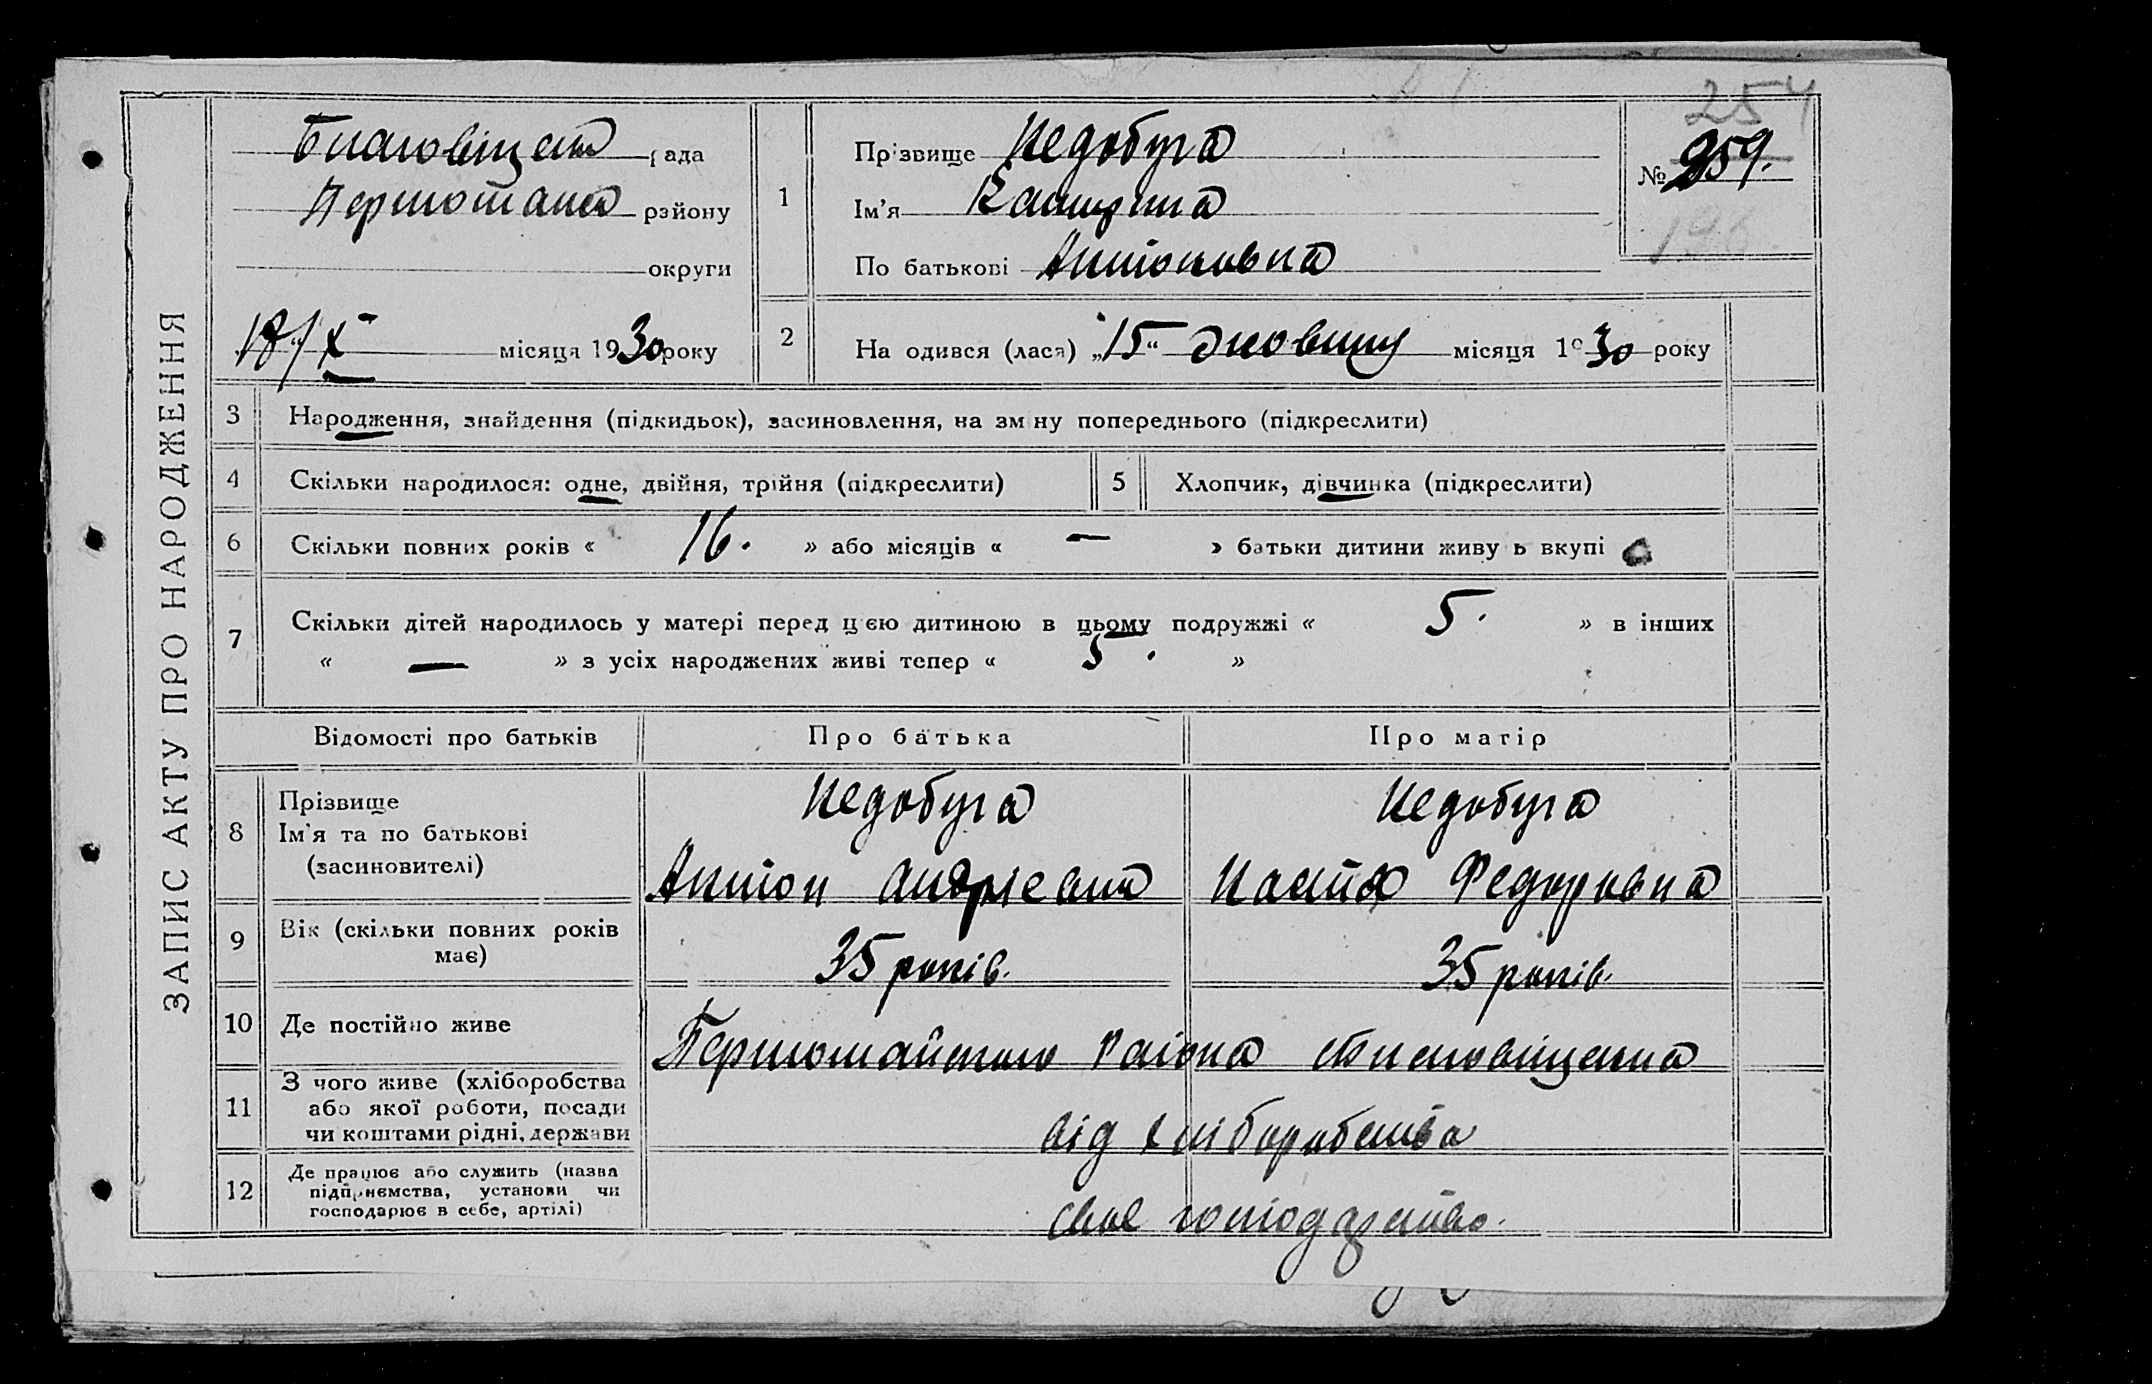 ЗАПИС АКТУ ПРО НАРОДЖЕННЯ
254
рада
району
округи
18/X місяця 1930 року
1
Прізвище Недобуга
Ім'я Катерина
По батькові Антіоновна
№ 259.
196.
2
На одився (лася) „15“ жовтну місяця 1930 року
3 Народження, знайдення (підкидьок), засиновлення, на зміну попереднього (підкреслити)
4 Скільки народилося: одне, двійня, трійня (підкреслити)
5 Хлопчик, дівчинка (підкреслити)
6 Скільки повних років « 16. » або місяців « — » батьки дитини живуть вкупі
7 Скільки дітей народилось у матері перед цією дитиною в цьому подружжі « 5. » в інших
« — » з усіх народжених живі тепер « 5. »
Відомості про батьків
Про батька
Про матір
8 Прізвище
Ім'я та по батькові
(засиновителі)
Недобуга
Антіон
Недобуга
Настя Федоровна
9 Вік (скільки повних років
має)
35 років.
35 років.
10 Де постійно живе
Першомайського Району
11 З чого живе (хліборобства
або якої роботи, посади
чи коштами рідні, держави
від хліборобства
12 Де працює або служить (назва
підприємства, установи чи
господарює в себе, артілі)
своє господарство.